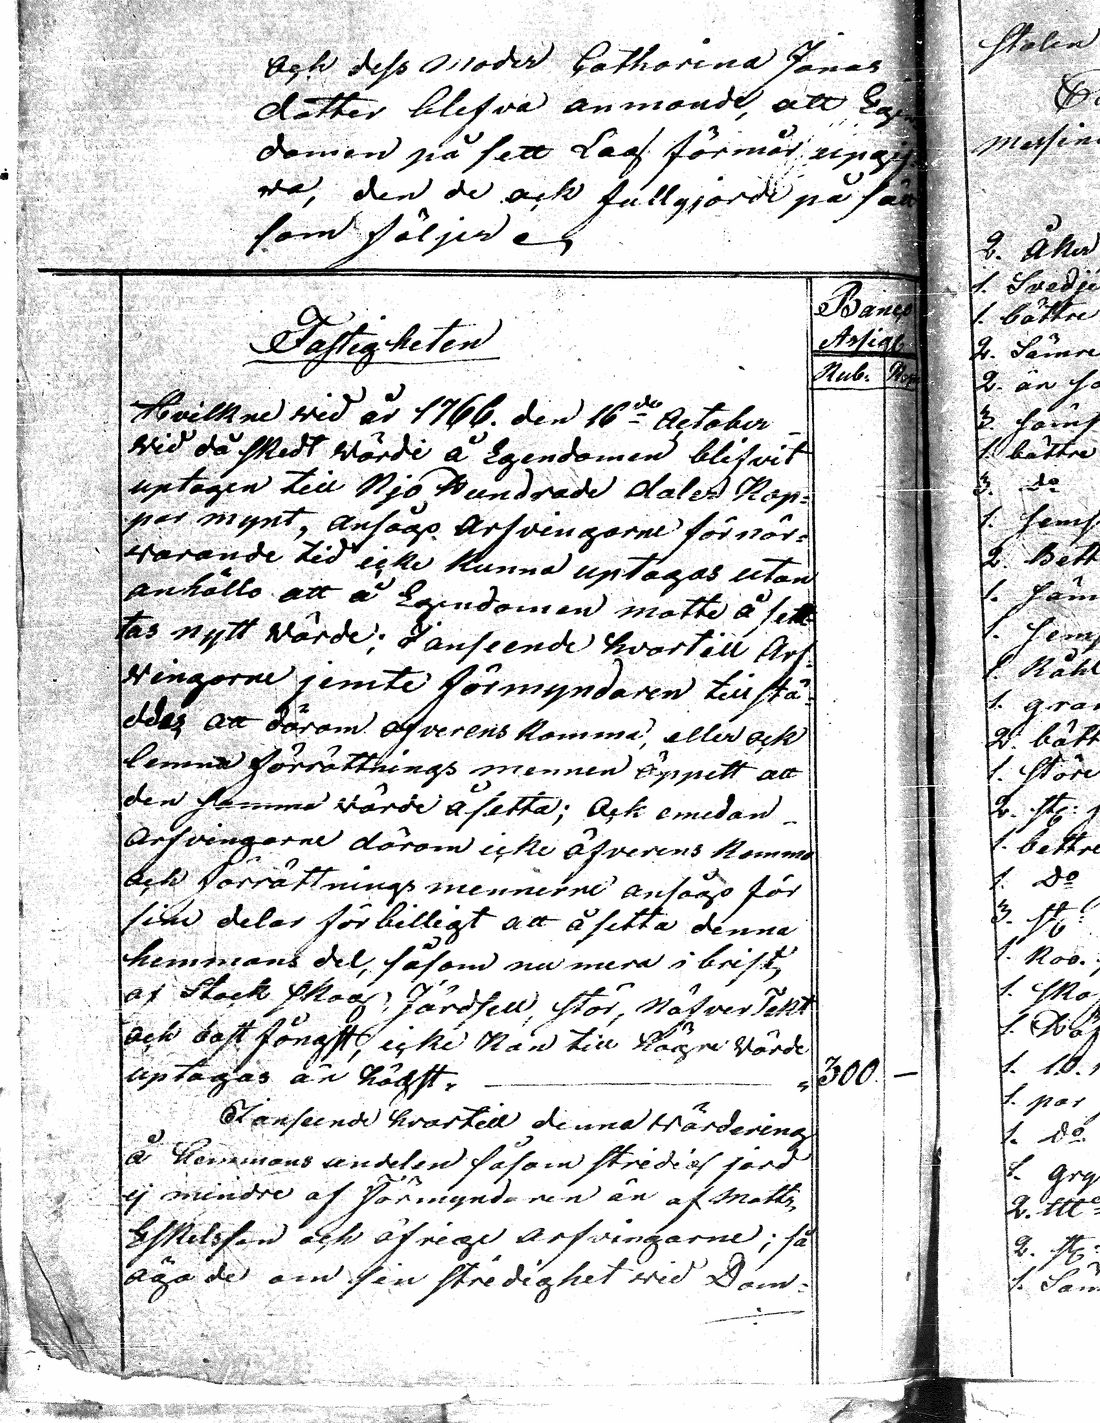 och dess moder Catharina Jonas
dotter blefva anmande, att Egen
domen på sett Lag förmår upgif
va, den de ock fullgjorde på sätt
som följer
Banco
Fastigheten
Assig.
Rub. Kop
Hvilkne wid år 1766. den 16de October
wid då skedt wärde å Egendomen blifvit
uptagen till Njo Hundrade daler Kop=
par mynt, ansågo Arfvingarne för när=
warande tid icke kunna uptagas utan
anhöllo att å Egendomen motte åsett
tas nytt wärde; I anseende hvartill Arf
wingarne jemte förmyndaren tillstä=
ddes att därom öfverens komma, eller ock
lemna förrättnings mennen öppett att
den samma wärde åsetta; Ock emedan
Arfvingarne därom icke öfverens komma
ock förrättnings mennerne ansågo för
sin delar för billigt att åsetta denna
hemmans del, såsom nu mera i brist,
af Stock Skog, Järdsell, stör, Näfver Tekt
ock bast fångst, icke kan till högre wärde
uptagas än högst. " 300 —
I anseende hvartill denna wärdering
å hemmans andelen såsom stridig jord
ej mindre af Förmyndaren än af Matts
Eskelsson ock öfrige arfvingarne; så
äga de om sin stridighet wid Dom=
Stolen
messing
2. Åker
1. Svedje
1. bättre
2. Sämre
2. än
3. säms
1. bättre
3. Do
1. semf
2. Bett
1. säm
1. semf
1. Kåhl
1. gran
2. bätt
1. Störe
2. st:
1. bettre
1. Do
3. st:
1. Koo.
1. Sko
1.
1. 10.
1. par
1. Do
1. gry
2.
2. st:
1. Säm